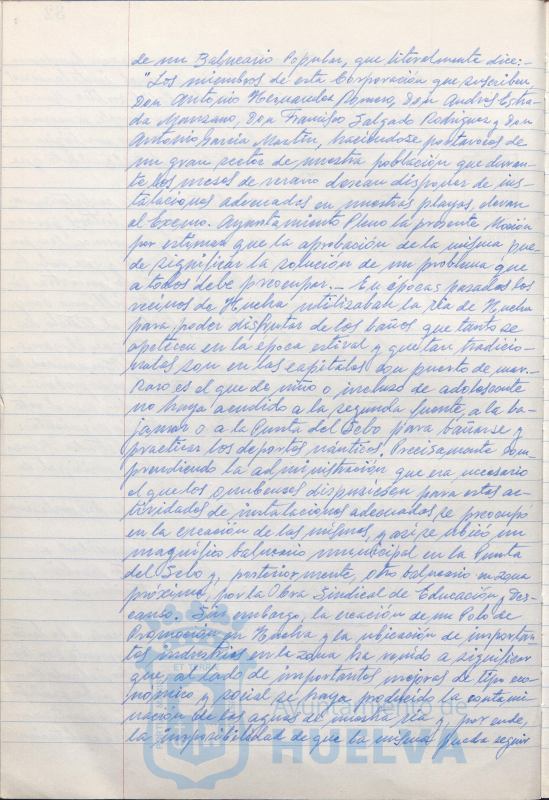 de un Balneario Popular, que literalmente dice:-
"Los miembros de esta Corporación que suscriben,
Don Antonio Hernandez Romero, Don Andres Estra-
da Manzano, Don Francisco Salgado Rodriguez y Don
Antonio Garcia Martin, haciendose portavoces de
un gran sector de nuestra población que duran-
te los meses de verano desean disponer de ins-
talaciones adecuadas en nuestras playas, elevan
al Excmo. Ayuntamiento Pleno la presente Moción
por estimar que la aprobación de la misma pue-
de significar la solución de un problema que
a todos debe preocupar.- En épocas pasadas los
vecinos de Huelva utilizaban la ría de Huelva
para poder disfrutar de los baños que tanto se
apetecen en la época estival y que tan tradicio-
nales son en las capitales con puerto de mar.-
Raro es el que de niño o incluso de adolescente
no haya acudido a la segunda fuente, a la ba-
jamar o a la Punta del Sebo para bañarse y
practicar los deportes náuticos. Precisamente com-
prendiendo la administración que era necesario
el que los onubenses dispusiesen para estas ac-
tividades de instalaciones adecuadas se preocupó
en la creación de las mismas, y así se ubicó un
magnífico balneario municipal en la Punta
del Sebo y, posteriormente, otro balneario en zona
próxima, por la Obra Sindical de Educación y Des-
canso. Sin embargo, la creación de un Polo de
Promoción en Huelva y la ubicación de importan-
tes industrias en la zona ha venido a significar
que, al lado de importantes mejoras de tipo eco-
nómico y social se haya producido la contami-
nación de las aguas de nuestra ría y, por ende,
la imposibilidad de que la misma pueda seguir
Ayuntamiento de
HUELVA